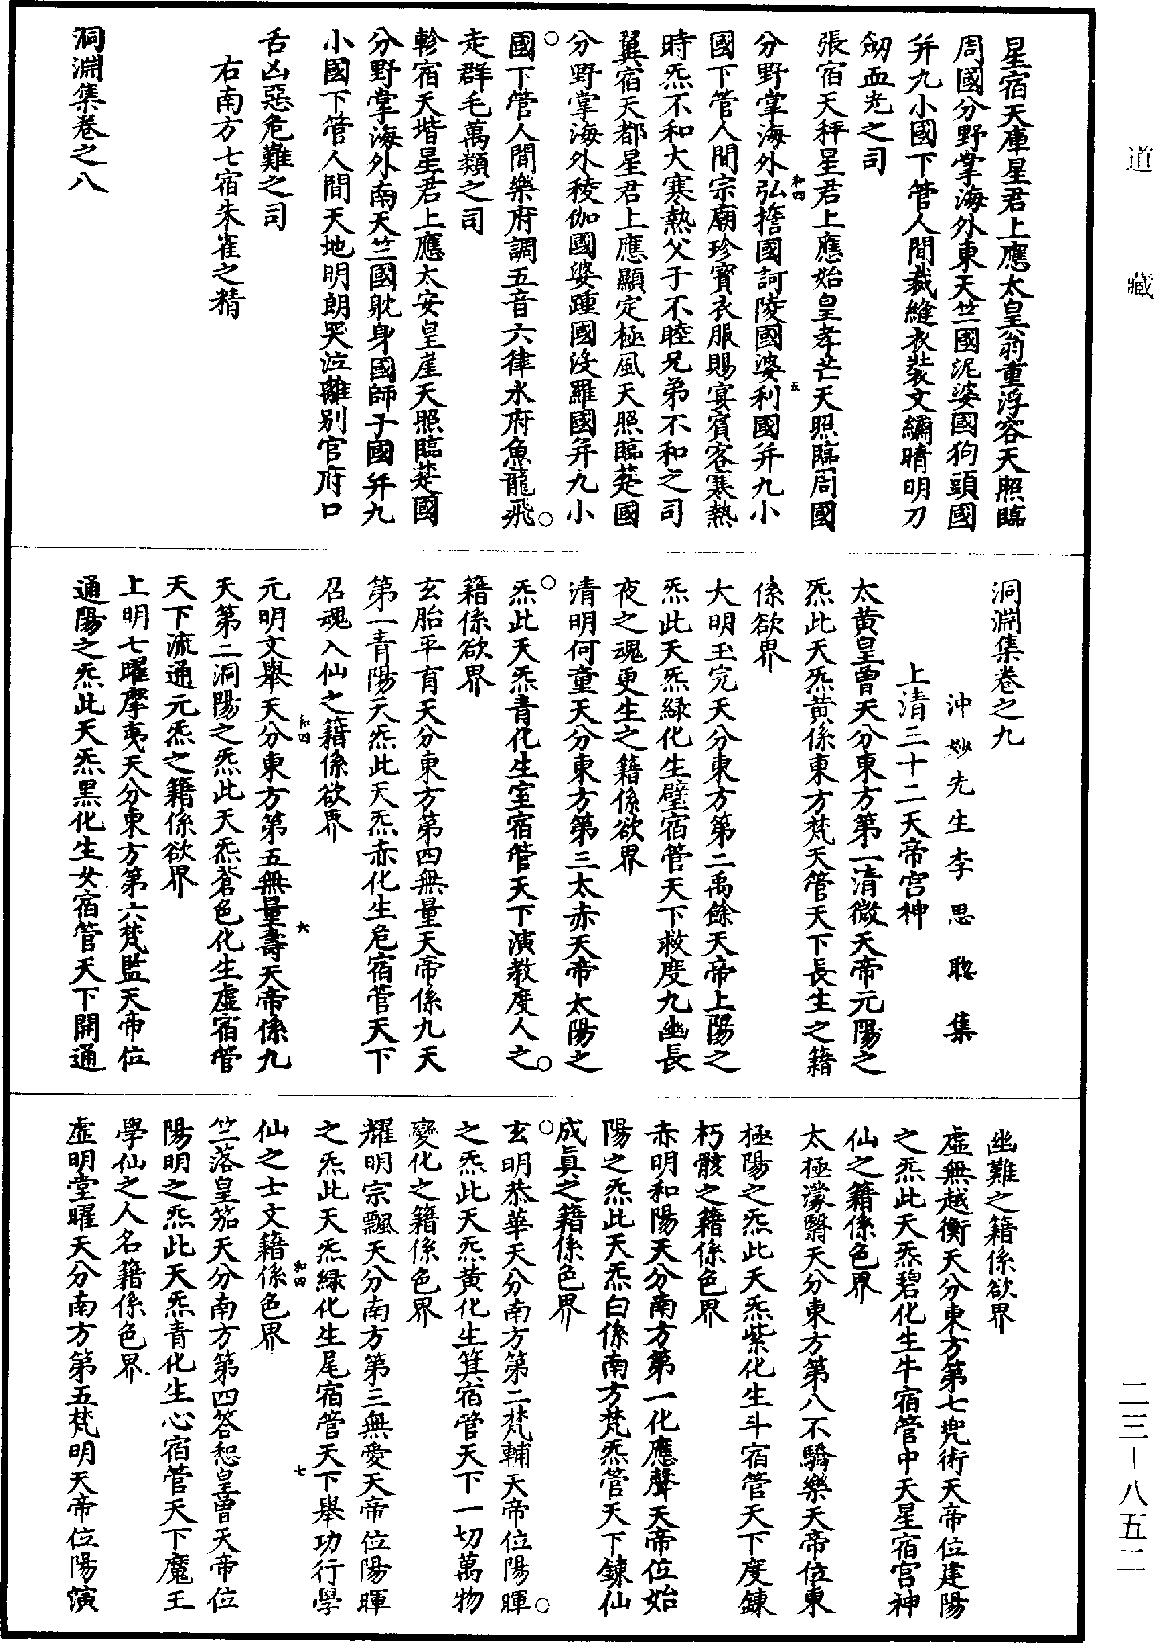 道藏
星宿天庫星君上應太皇翁重浮容天照臨
周國分野掌海外東天竺國泥婆國狗頭國
并九小國下管人間裁縫衣裝文繡晴明刀
劒血光之司
張宿天秤星君上應始皇孝芒天照臨周國
分野掌海外弘擔國訶陵國婆利國并九小
和四
五
國下管人間宗廟珍寳衣服賜宴賓客寒熱
時炁不和大寒熱父子不睦兄弟不和之司
翼宿天都星君上應顯定極風天照臨楚國
分野掌海外稜伽國婆踵國沒羅國并九小
國下管人間樂府調五音六律水府魚龍飛
走群毛萬類之司
軫宿天堦星君上應太安皇崖天照臨楚國
分野掌海外南天竺國躭身國師子國并九
小國下管人間天地明朗哭泣離别官府口
舌凶惡危難之司
右南方七宿朱雀之精
洞淵集卷之八
洞淵集卷之九
沖妙先生李思聰集
上清三十二天帝宮神
太黃皇曾天分東方第一清微天帝元陽之
炁此天炁黃係東方梵天管天下長生之籍
係欲界
大明玉完天分東方第二禹餘天帝上陽之
炁此天炁綠化生壁宿管天下救度九幽長
夜之魂更生之籍係欲界
清明何童天分東方第三太赤天帝太陽之
炁此天炁青化生室宿管天下演教度人之
籍係欲界
玄胎平育天分東方第四無量天帝係九天
第一青陽天炁此天炁赤化生危宿管天下
召魂入仙之籍係欲界
元明文舉天分東方第五無量壽天帝係九
和四
六
天第二洞陽之炁此天炁蒼色化生虛宿管
天下流通元炁之籍係欲界
上明七曜摩夷天分東方第六梵監天帝位
通陽之炁此天炁黑化生女宿管天下開通
幽難之籍係欲界
虛無越衡天分東方第七兜術天帝位建陽
之炁此天炁碧化生牛宿管中天星宿宮神
仙之籍係色界
太極濛翳天分東方第八不驕樂天帝位東
極陽之炁此天炁紫化生斗宿管天下度鍊
朽骸之籍係色界
赤明和陽天分南方第一化應聲天帝位始
陽之炁此天炁白係南方梵炁管天下鍊仙
成真之籍係色界
玄明恭華天分南方第二梵輔天帝位陽暉
之炁此天炁黃化生箕宿管天下一切萬物
變化之籍係色界
耀明宗飄天分南方第三無愛天帝位陽暉
之炁此天炁綠化生尾宿管天下舉功行學
和四
七
仙之士文籍係色界
竺落皇笳天分南方第四答恕皇曾天帝位
陽明之炁此天炁青化生心宿管天下魔王
學仙之人名籍係色界
虛明堂曜天分南方第五梵明天帝位陽演
二三—八五二